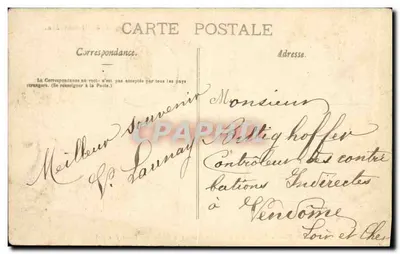 CARTE POSTALE
Correspondance.
Adresse.
La Correspondance au recto n'est pas acceptée par tous les pays
étrangers. (Se renseigner à la Poste.)
Meilleur souvenir
V. Launay
Monsieur
Ristighoffer
Contrôleur des contri
butions Indirectes
à Vendôme
Loir et Cher